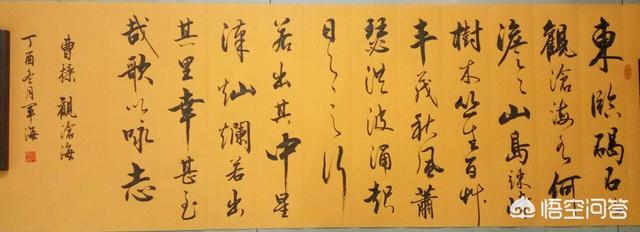 東臨碣石
觀滄海水何
澹々山島竦峙
樹木丛生百艸
丰茂秋風蕭
瑟洪波涌起
日之行
若出其中星
漢灿爛若出
其里幸甚至
哉歌以咏志
曹操 觀滄海
丁酉冬月軍海
悟空问答